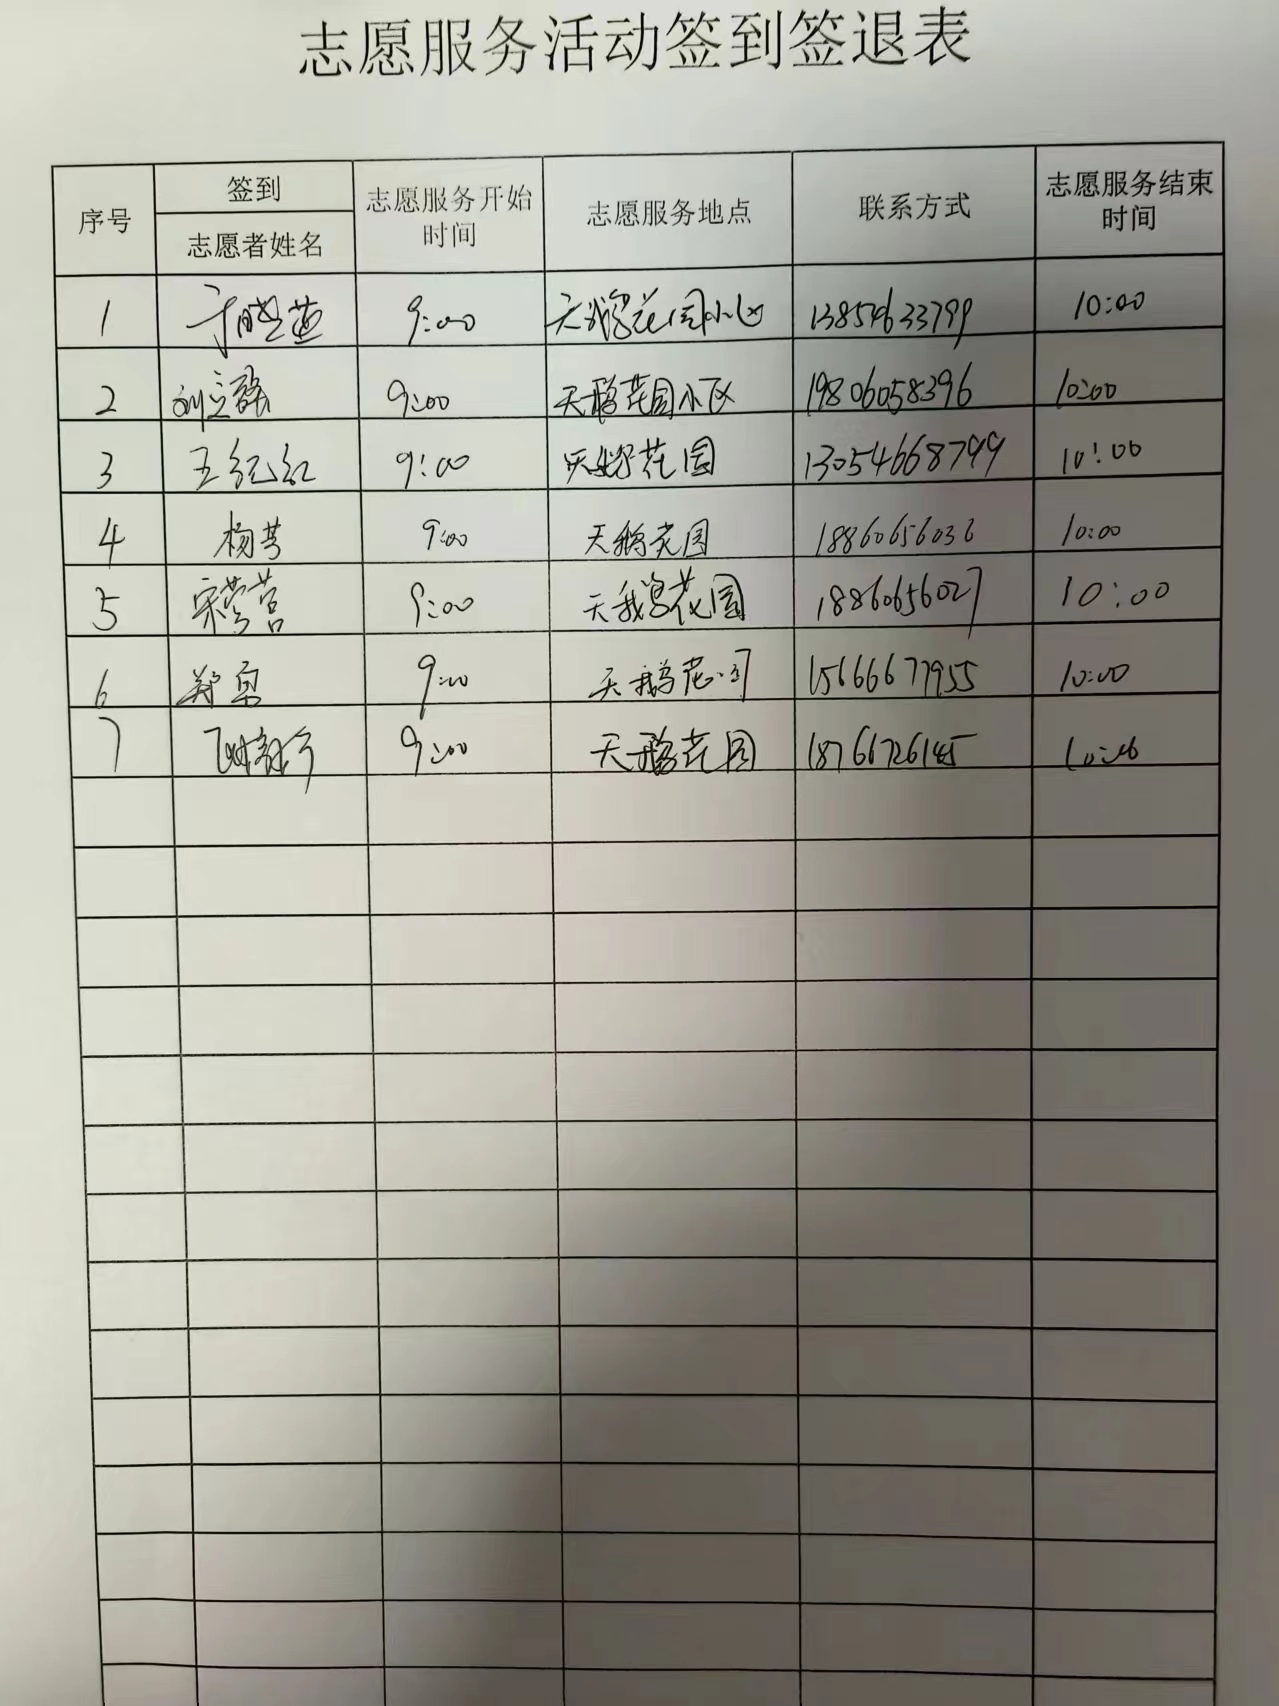 志愿服务活动签到签退表
序号 签到 志愿者姓名 志愿服务开始时间 志愿服务地点 联系方式 志愿服务结束时间
1 于晓燕 9:00 天鹅花园小区 13854633799 10:00
2 刘立强 9:00 天鹅花园小区 19806058396 10:00
3 王纪红 9:00 天鹅花园 13054668799 10:00
4 杨芳 9:00 天鹅花园 18860656036 10:00
5 宋莹莹 9:00 天鹅花园 18860656027 10:00
6 9:00 天鹅花园 15666677955 10:00
7 9:00 天鹅花园 18766726145 10:00